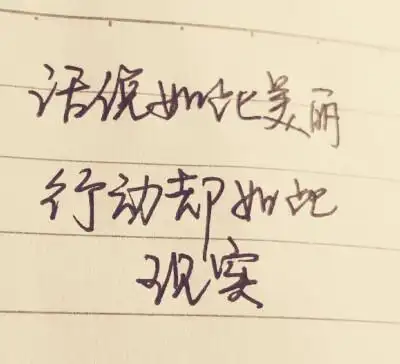 话说如此美丽
行动却如此
现实